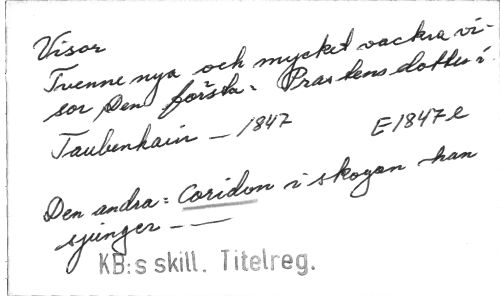 Visor
Tvenne nya och mycket vackra vi-
sor Den första: Prastens dotter i
Taubenhain — 1847 E1847e
Den andra: Coridon i skogen han
sjunger — —
KB:s skill. Titelreg.